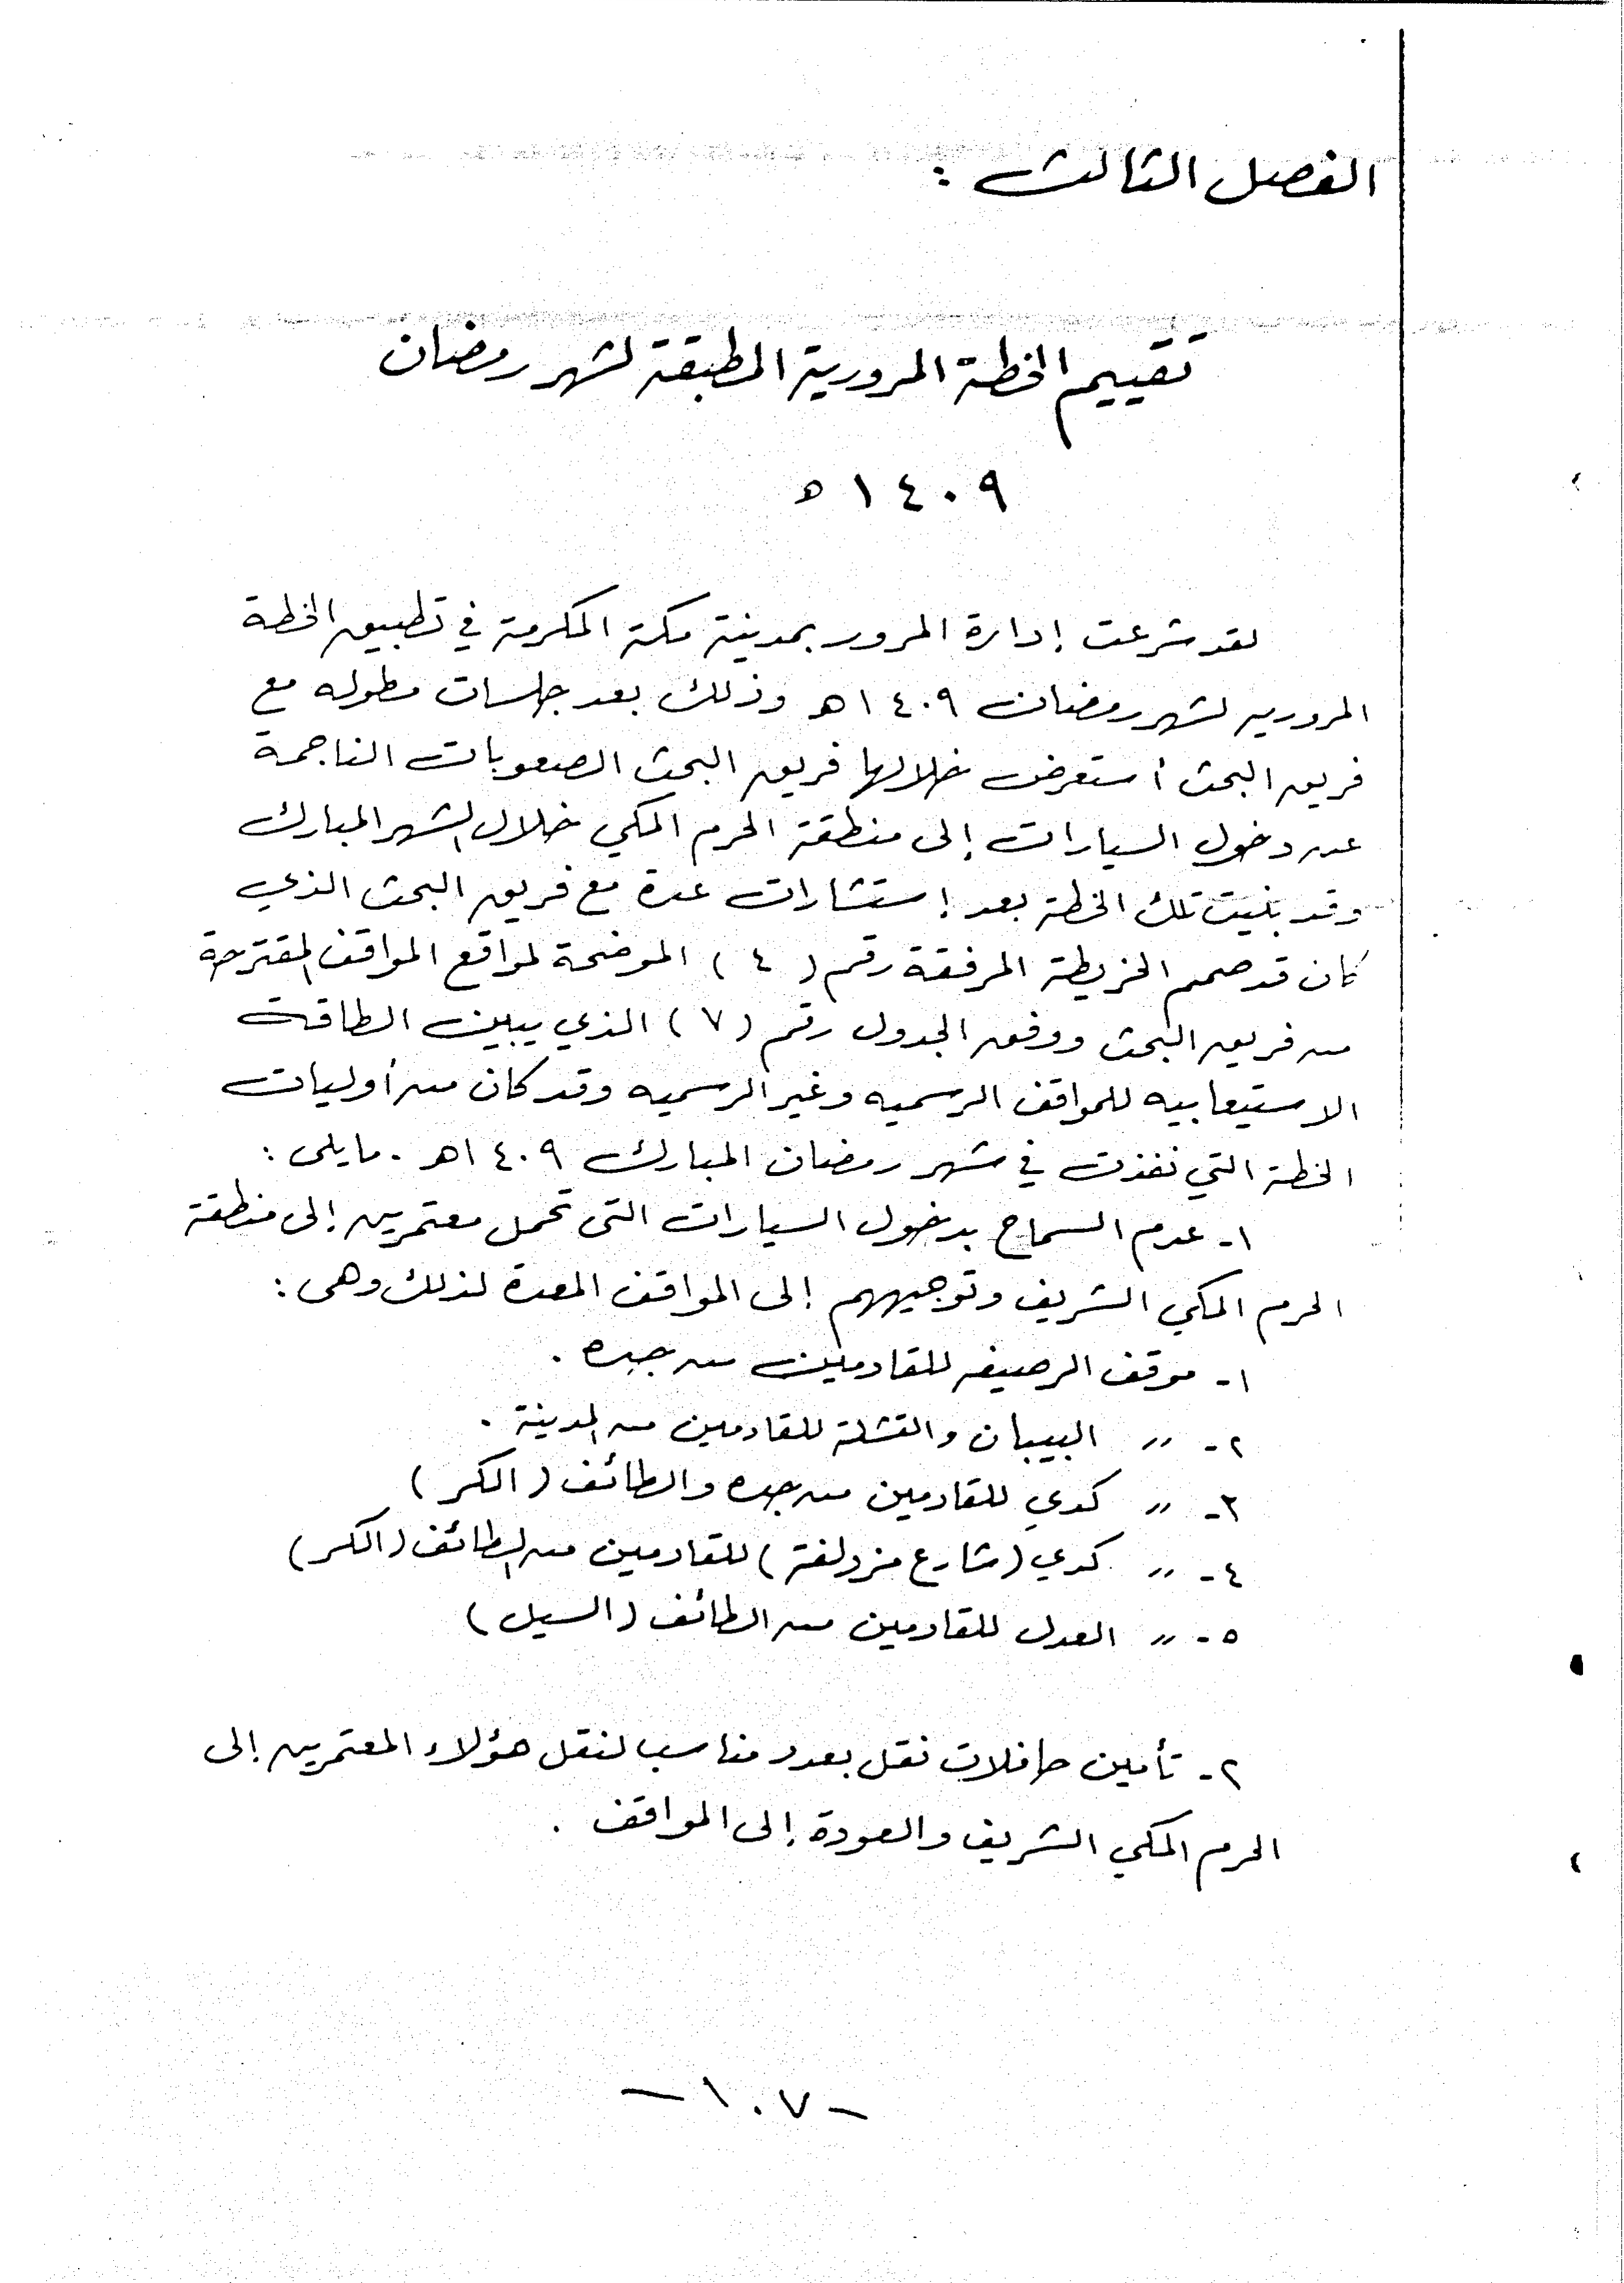 الفصل الثالث :
تقييم الخطة المرورية المطبقة لشهر رمضان
١٤٠٩ ه
لقد شرعت إدارة المرور بمدينة مكة المكرمة في تطبيق الخطة
المروريه لشهر رمضان ١٤٠٩ه وذلك بعد جلسات مطوله مع
فريق البحث أستعرض خلالها فريق البحث الصعوبات الناجمة
عن دخول السيارات إلى منطقة الحرم المكي خلال الشهر المبارك
وقد بنيت تلك الخطة بعد إستشارات عدة مع فريق البحث الذي
كان قد صمم الخريطة المرفقة رقم ( ٤ ) الموضحة لمواقع المواقف المقترحة
من فريق البحث ووفق الجدول رقم (٧) الذي يبين الطاقة
الاستيعابيه للمواقف الرسميه وغير الرسميه وقد كان من أوليات
الخطة التي نفذت في شهر رمضان المبارك ١٤٠٩ه . مايلى :
١- عدم السماح بدخول السيارات التى تحمل معتمرين إلى منطقة
الحرم المكي الشريف وتوجيههم إلى المواقف المعدة لذلك وهى :
١- موقف الرصيفه للقادمين من جده .
٢- ״ البيبان والقشلة للقادمين من المدينة .
٣- ״ كدي للقادمين من جده والطائف ( الكر )
٤- ״ كدي (شارع مزدلفة) للقادمين من الطائف (الكر)
٥- ״ العدل للقادمين من الطائف ( السيل )
٢- تأمين حافلات نقل بعدد مناسب لنقل هؤلاء المعتمرين إلى
الحرم المكي الشريف والعودة إلى المواقف .
- ١٠٧ -